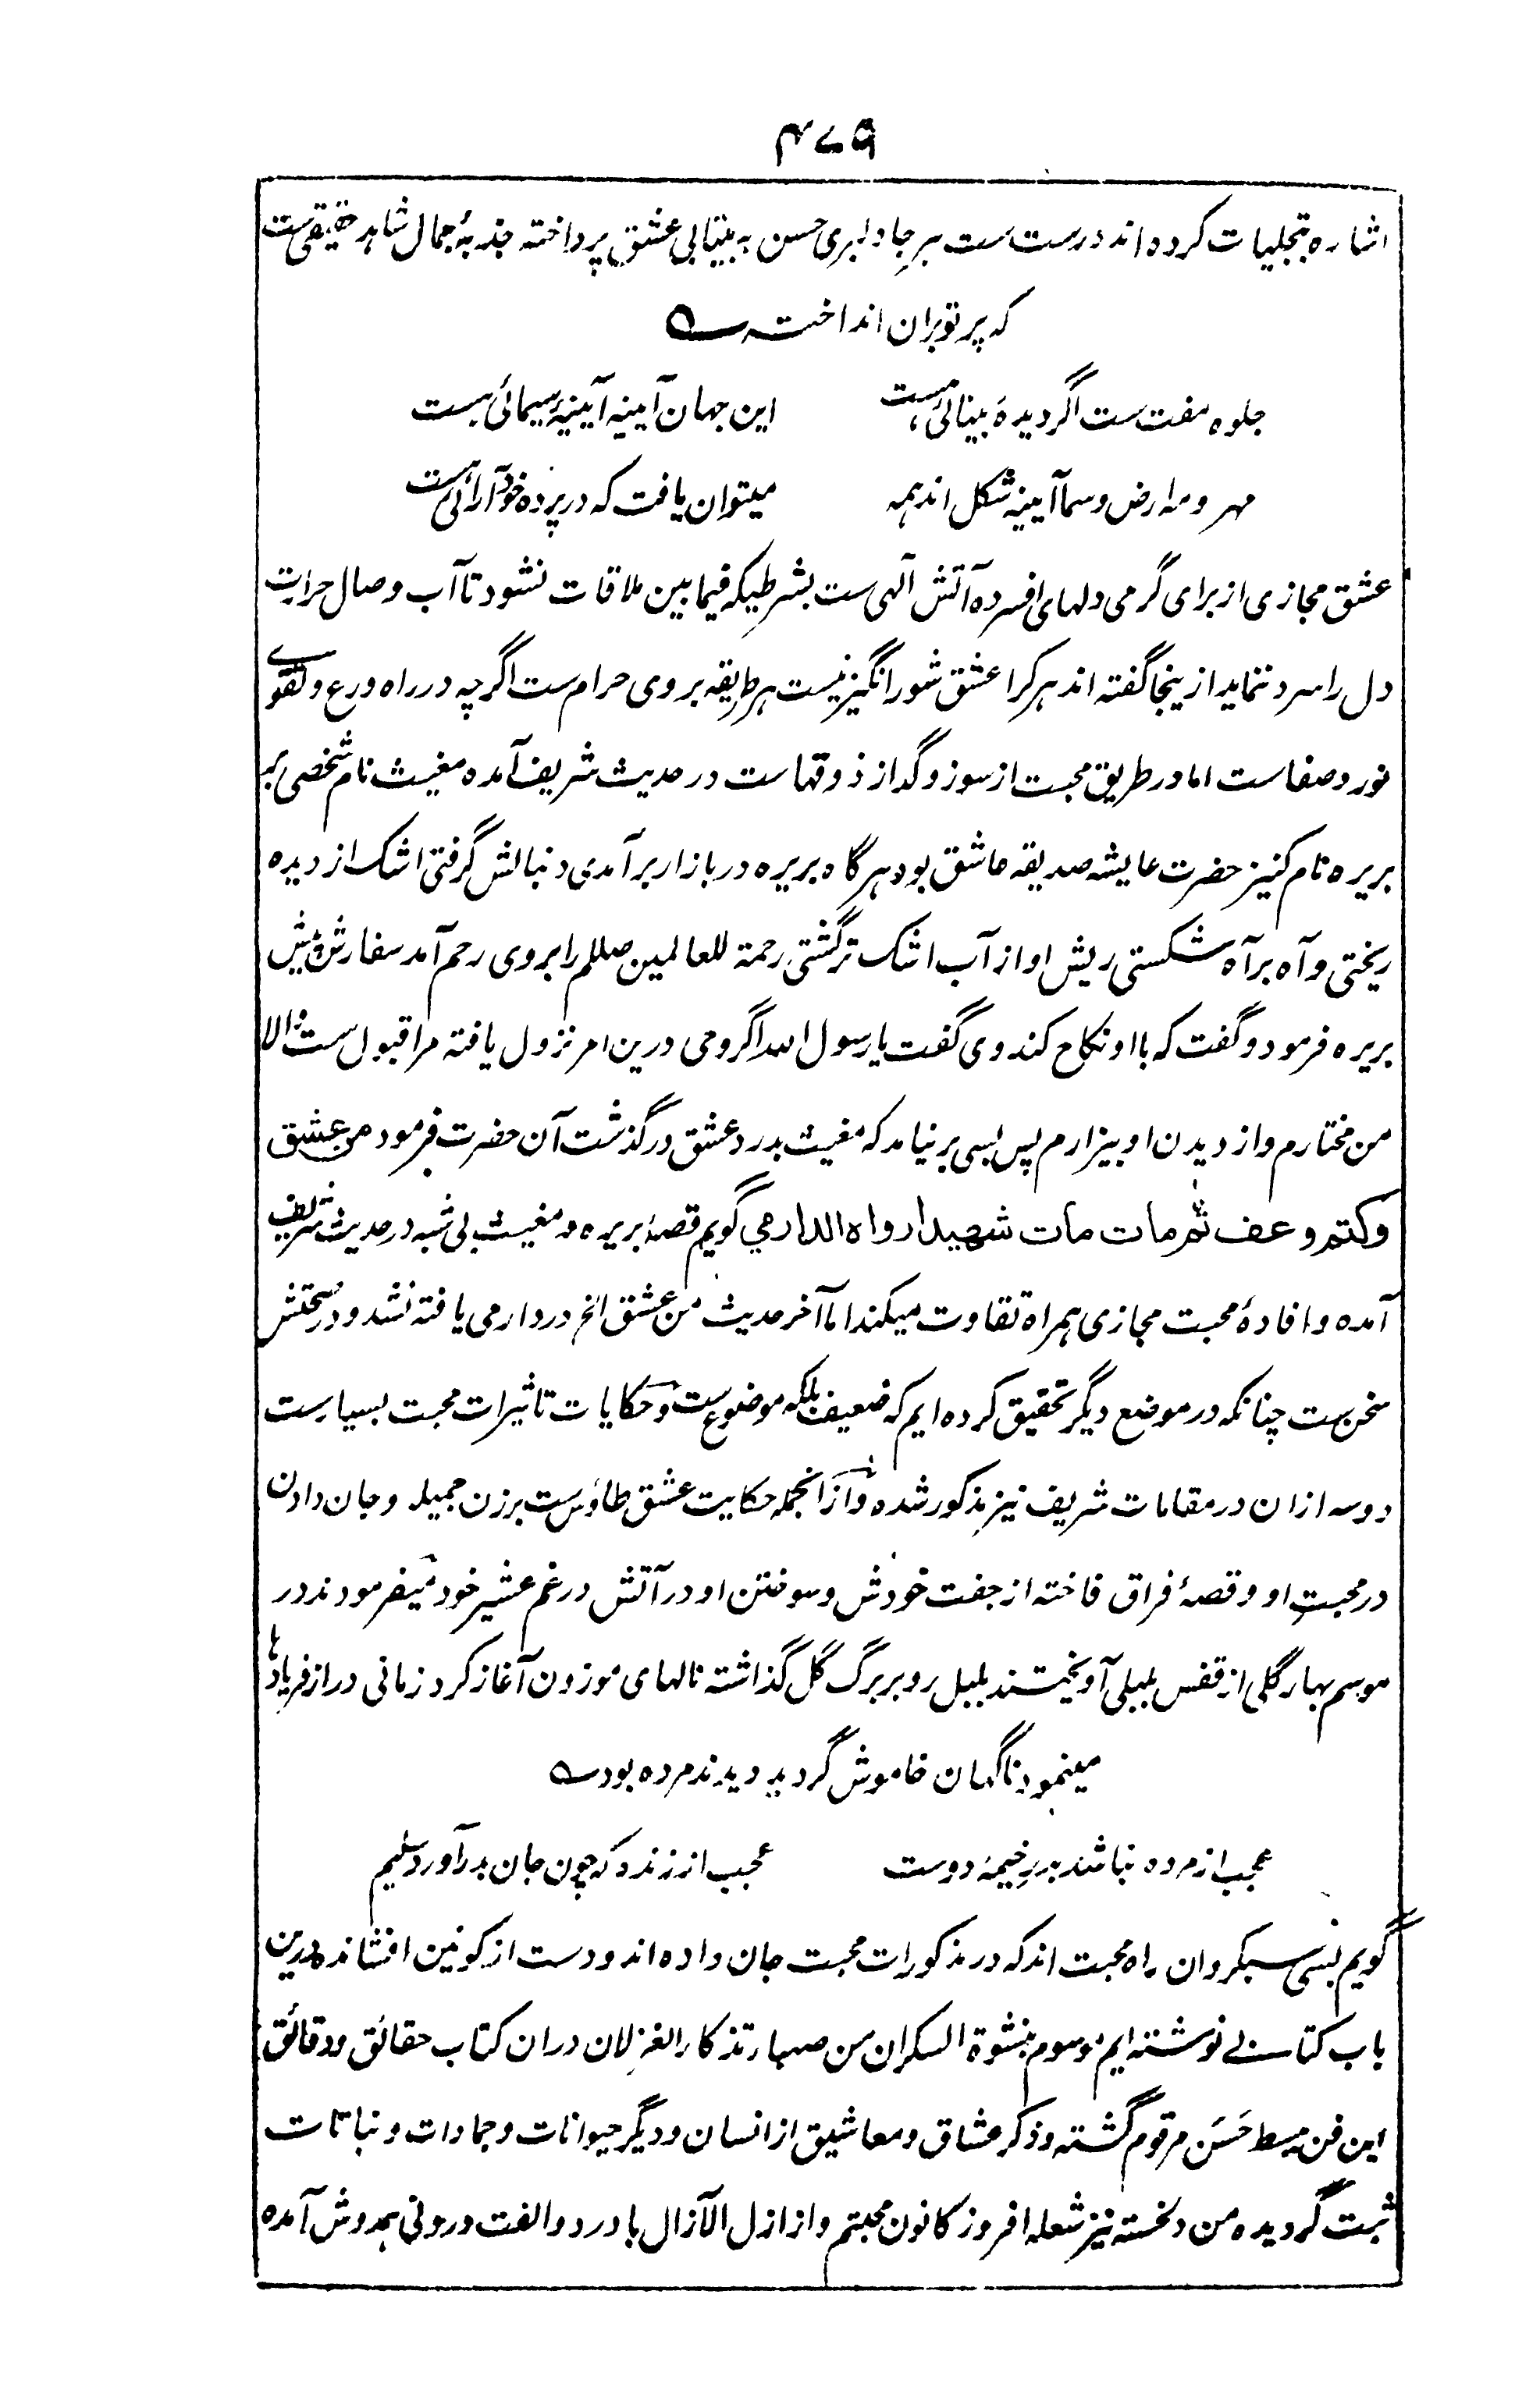 ۴۷۹
اشاره بتجلیات کرده اند درست ست هر جا دلبری حسن به بیتابی عشق پرداخته جذبهٔ جمال شاهد حقیقی ست
که پرتو بران انداخته ؎
جلوه مفت ست اگر دیدهٔ بینائی هست این جهان آینه آیینهٔ سیمائی هست
مهر و مه ارض و سما آیینه شکل اند همه میتوان یافت که در پرده خود آرائی هست
عشق مجازی از برای گرمی دلهای افسرده آتش آلهی ست بشرطیکه فیما بین ملاقات نشود تا آب وصال حرارت
دل را سرد ننماید ازینجا گفته اند هر کرا عشق شور انگیز نیست هر طریقه بر وی حرام ست اگرچه در راه ورع و تقوے
نور و صفاست اما در طریق محبت از سوز و گداز ذوقهاست در حدیث شریف آمده مغیث نام شخصی بر
بریره نام کنیز حضرت عایشه صدیقه عاشق بود هر گاه بریره در بازار برآمدی دنبالش گرفتی اشک از دیده
ریختی و آه بر آه شکستی ریش او از آب اشک تر گشتی رحمة للعالمین صللم را بر وی رحم آمد سفارش پیش
بریره فرمود و گفت که با او نکاح کند وی گفت یا رسول الله اگر وحی درین امر نزول یافته مرا قبول ست والا
من مختارم و از دیدن او بیزارم پس بسی برنیامد که مغیث بدرد عشق در گذشت آن حضرت فرمود من عشق
وکتم وعف ثم مات مات شهیدا رواه الدارمی گویم قصهٔ بریره و مغیث بی شبه در حدیث شریف
آمده و افادهٔ محبت مجازی همراه تقاوت میکند اما آخر حدیث من عشق الخ در دارمی یافته نشد و در صحتش
سخن ست چنانکه در موضع دیگر تحقیق کرده ایم که ضعیف بلکه موضوع ست و حکایات تاثیرات محبت بسیارست
دو سه ازان در مقامات شریف نیز مذکور شده و ازانجمله حکایت عشق طاؤس ست بر زن جمیله و جان دادن
در محبت او و قصهٔ فراق فاخته از جفت خودش و سوختن او در آتش در غم عشیر خود میفرمودند در
موسم بهار گلی از قفس بلبلی آویختند بلبل رو بر برگ گل گذاشته نالهای موزون آغاز کرد زمانی دراز فریادها
مینمود ناگهان خاموش گردید دیدند مرده بود ؎
عجب از مرده نباشد بدر خیمهٔ دوست عجب از زنده که چون جان بدر آورد سلیم
گویم بسی سبکروان راه محبت اند که در مذکورات محبت جان داده اند و دست از کونین افشانده درین
باب کتابے نوشته ایم موسوم بنشوة السکران من صهباء تذکار الغزلان دران کتاب حقائق و دقائق
این فن ببسط حَسَن مرقوم گشته و ذکر عشاق و معاشیق از انسان و دیگر حیوانات و جمادات و نباتات
ثبت گردیده من دلخسته نیز شعله افروز کانون محبتم و از ازل الآزال با درد و الفت درونی همدوش آمده